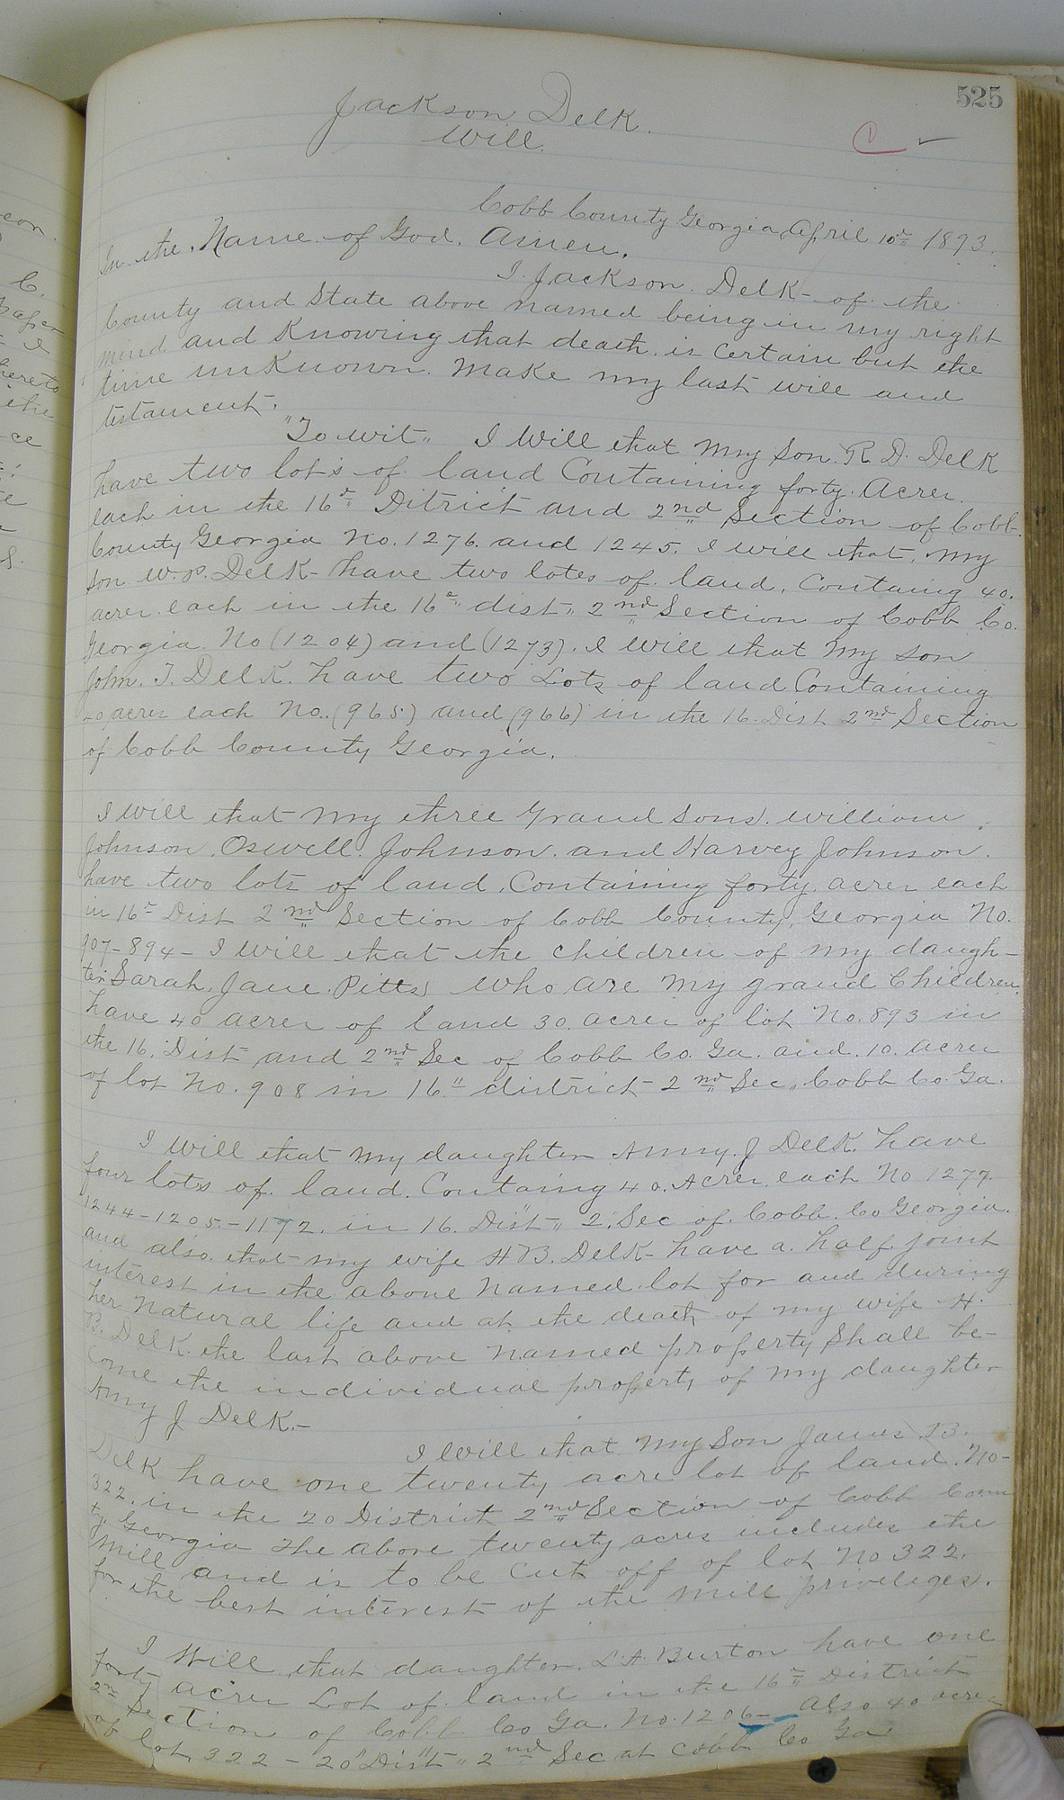 525
Jackson Delk.
Will.
Cobb County Georgia, April 10th 1893.
In the Name of God. Amen.
I Jackson Delk of the
County and State above named being in my right
mind and Knowing that death is Certain but the
time unKnown. Make my last will and
testament.
"To wit" I Will that My Son R. D. Delk
have two lots of land Containing forty Acres
each in the 16th Ditrict and 2nd Section of Cobb
County Georgia No. 1276. and 1245. I will that my
son W. P. Delk have two lotes of land, Containg 40.
acres each in the 16th dist. 2nd Section of Cobb Co.
Georgia No (1204) and (1273). I will that My son
John. T. Delk. have two Lots of land Containing
40 acres each No. (965) and (966) in the 16. Dist 2nd Section
of Cobb County Georgia.
I will that My three Grand Sons. William
Johnson. Oswell. Johnson. and Harvey Johnson.
have two lots of land, Containing forty acres each
in 16th Dist 2nd Section of Cobb County, Georgia No.
907-894- I will that the children of my daugh-
ter Sarah Jane Pitts who are My grand Children
have 40 acres of land 30. acres of lot No. 893 in
the 16. Dist and 2nd Sec of Cobb Co. Ga. and. 10. acres
of lot No. 908 in 16" district 2nd Sec, Cobb Co. Ga.
I will that my daughter Amy. J Delk. have
four lots of land. Containg 40. Acres each No 1277
1244-1205-1172. in 16. Dist" 2. Sec of Cobb. Co Georgia.
and also that my wife H B. Delk have a half joint
interest in the above Named lot for and during
her Natural life and at the death of my wife H.
B. Delk the last above Named property Shall be-
come the individual property of My daughter
Amy J Delk.-
I Will that My Son James B.
Delk have one twenty acre lot of land. No-
322. in the 20 District 2nd Section of Cobb Coun
ty. Georgia The above twenty acres includes the
Mill and is to be Cut off of lot No 322.
for the best interest of the Mill priveliges.
I Will that daughter. L. A. Burton have one
forty acres Lot of land in the 16th District
2nd Section of Cobb Co Ga. No. 1206- also 40 acres
of lot 322 - 20" Dist" 2nd Sec at Cobb Co Ga